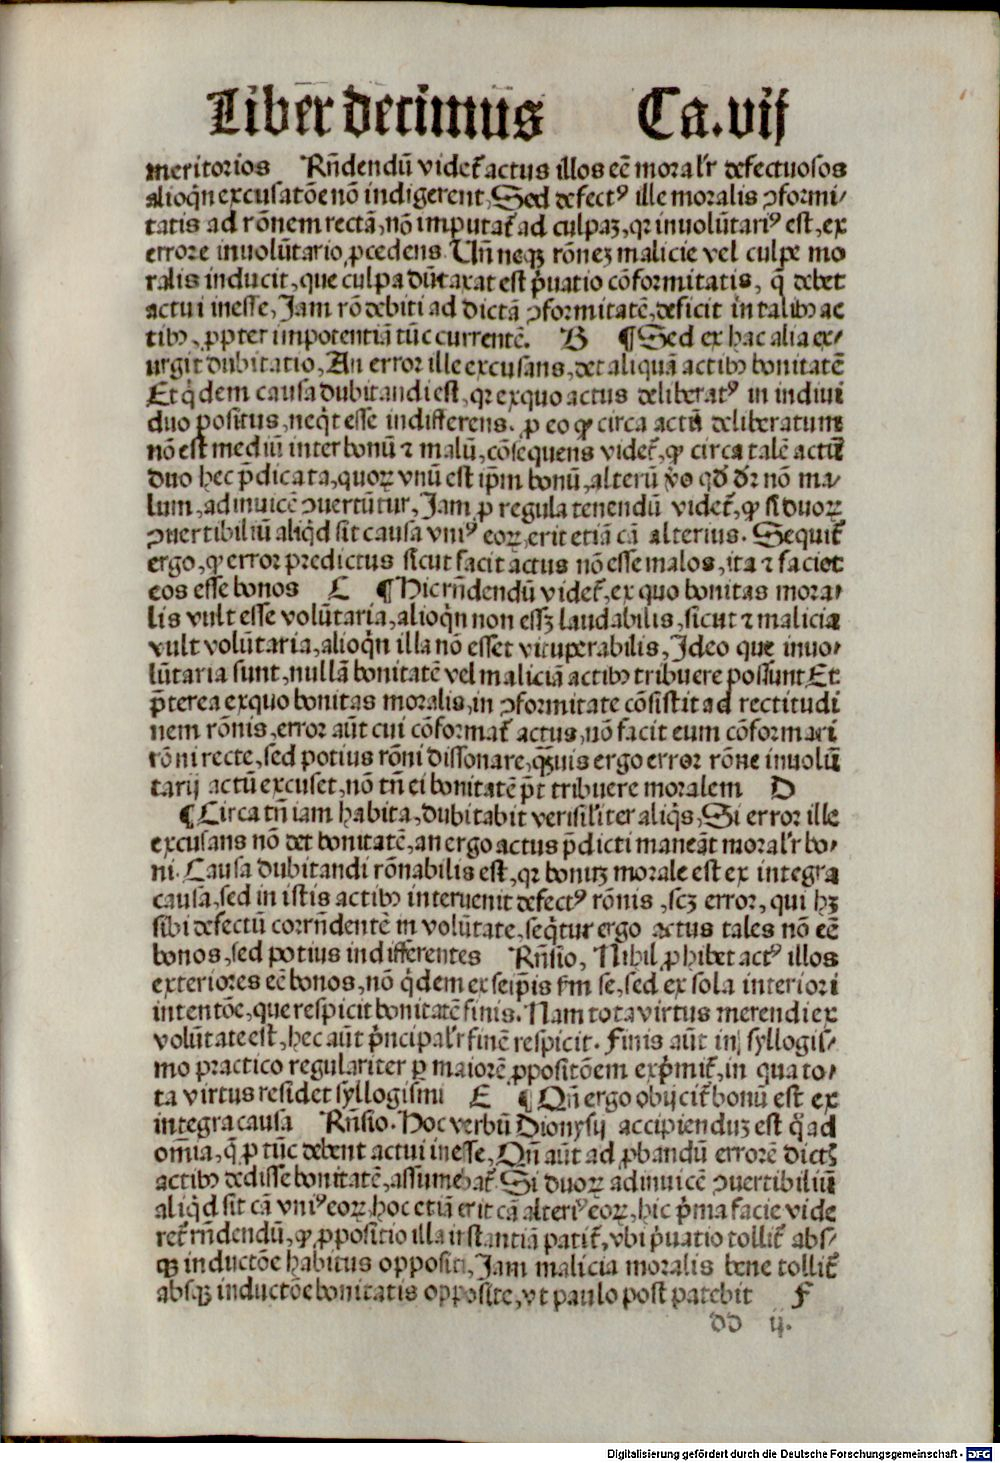 Liber decimus Ca.vij
meritorios Rñdendũ videt᷑ actus illos eẽ moral'r defectuosos
alioq̃n excusatõe nõ indigerent, Sed defectꝰ ille moralis ꝯformi⸗
tatis ad rõnem rectã, nõ imputat᷑ ad culpaʒ, qꝛ inuolũtariꝰ est, ex
errore inuolũtario ꝓcedens. Uñ neqꝫ rõneʒ malicie vel culpe mo
ralis inducit, que culpa dũtaxat est p̃uatio cõformitatis, q̃ debet
actui inesse, Jam rõ debiti ad dictã ꝯformitatẽ, deficit in talibꝰ ac
tibꝰ, ꝓpter impotentiã tũc currentẽ. B ¶ Sed ex hac alia ex⸗
urgit dubitatio, An error ille excusans, det aliquã actibꝰ bonitatẽ
Et q̃dem causa dubitandi est, qꝛ exquo actus deliberatꝰ in indiui
duo positus, neq̃t esse indifferens. ꝑ eo ꝙ circa actũ deliberatum
nõ est mediũ inter bonũ ⁊ malũ, cõsequens videt᷑, ꝙ circa talẽ actũ
duo hec p̃dicata, quoꝝ vnũ est ip̃m bonũ, alterũ ṽo qď dr̃ nõ ma⸗
lum, adinuicẽ ꝯuertũtur, Jam ꝑ regula tenendũ videt᷑, ꝙ si duoꝝ
ꝯuertibiliũ aliq̃d sit causa vniꝰ eoꝝ, erit etiã cã alterius. Sequit᷑
ergo, ꝙ error predictus sicut facit actus nõ esse malos, ita ⁊ faciet
eos esse bonos C ¶ Hic rñdendũ videt᷑, ex quo bonitas mora⸗
lis vult esse volũtaria, alioq̃n non essʒ laudabilis, sicut ⁊ malicia
vult volũtaria, alioq̃n illa nõ esset vituperabilis, Jdeo que inuo⸗
lũtaria sunt, nullã bonitatẽ vel maliciã actibꝰ tribuere possunt Et
p̃terea exquo bonitas moralis, in ꝯformitate cõsistit ad rectitudi
nem rõnis, error aũt cui cõformat᷑ actus, nõ facit eum cõformari
rõni recte, sed potius rõni dissonare, qꝫuis ergo error rõne inuolũ
tarij actũ excuset, nõ tñ ei bonitatẽ p̃t tribuere moralem D
¶ Circa tñ iam habita, dubitabit verisil'iter aliq̃s, Si error ille
excusans nõ det bonitatẽ, an ergo actus p̃dicti maneãt moral'r bo⸗
ni. Causa dubitandi rõnabilis est, qꝛ bonitʒ morale est ex integra
causa, sed in istis actibꝰ interuenit defectꝰ rõnis, scʒ error, qui hʒ
sibi defectũ corrñdentẽ in volũtate, seq̃tur ergo actus tales nõ eẽ
bonos, sed potius indifferentes Rñsio, Nihil ꝓhibet actꝰ illos
exteriores eẽ bonos, nõ q̃dem ex seip̃is fm se, sed ex sola interiori
intentõe, que respicit bonitatẽ finis. Nam tota virtus merendi ex
volũtate est, hec aũt p̃ncipal'r finẽ respicit. Finis aũt in syllogis⸗
mo practico regulariter ꝑ maiorẽ ꝓpositõem exp̃mit᷑, in qua to⸗
ta virtus residet syllogismi E ¶ Qñ ergo obijcit᷑ bonũ est ex
integra causa Rñsio. Hoc verbũ Dionysij accipienduʒ est q̃ad
om̃ia, q̃ ꝑ tũc debent actui inesse, Qñ aũt ad ꝓbandũ errorẽ dictʒ
actibꝰ dedisse bonitatẽ, assumebat᷑. Si duoꝝ adinuicẽ ꝯuertibiliũ
aliq̃d sit cã vniꝰ eoꝝ, hoc etiã erit cã alteriꝰ eoꝝ, hic p̃ma facie vide
ret᷑ rñdendũ, ꝙ ꝓpositio illa instantiã patit᷑, vbi p̃uatio tollit᷑ abs⸗
qꝫ inductõe habitus oppositi, Jam malicia moralis bene tollit᷑
absqꝫ inductõe bonitatis opposite, vt paulo post patebit F
dd ij.
Digitalisierung gefördert durch die Deutsche Forschungsgemeinschaft - DFG